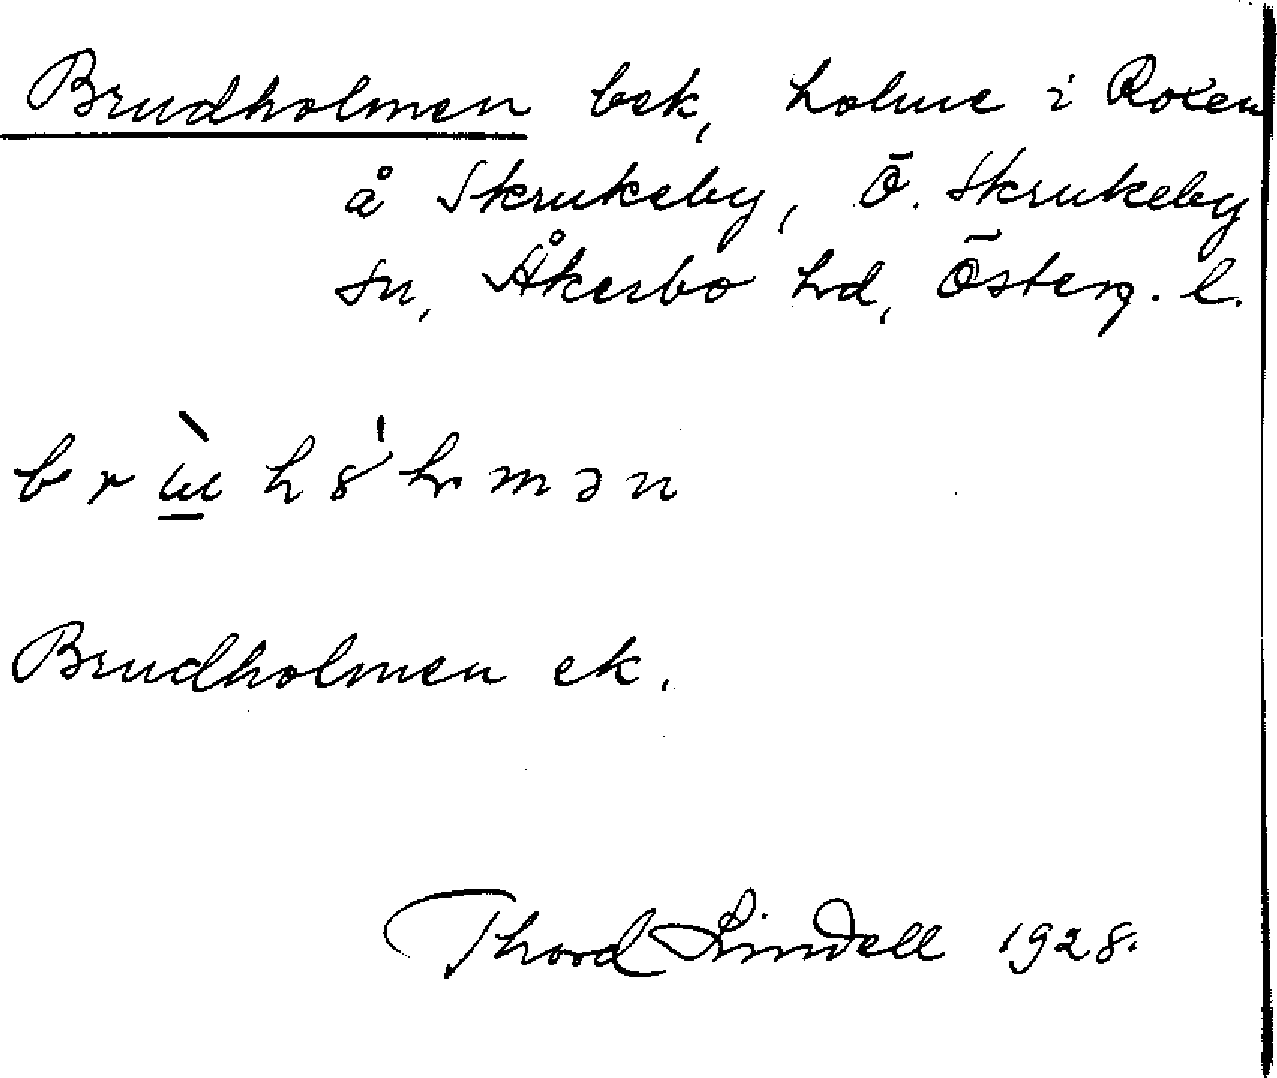 Brudholmen bek, holme i Roxen
å Skrukeby, Ö. Skrukeby
sn, Åkerbo hd, Österg. l.
Brudholmen ek.
Thord Lindell 1928.